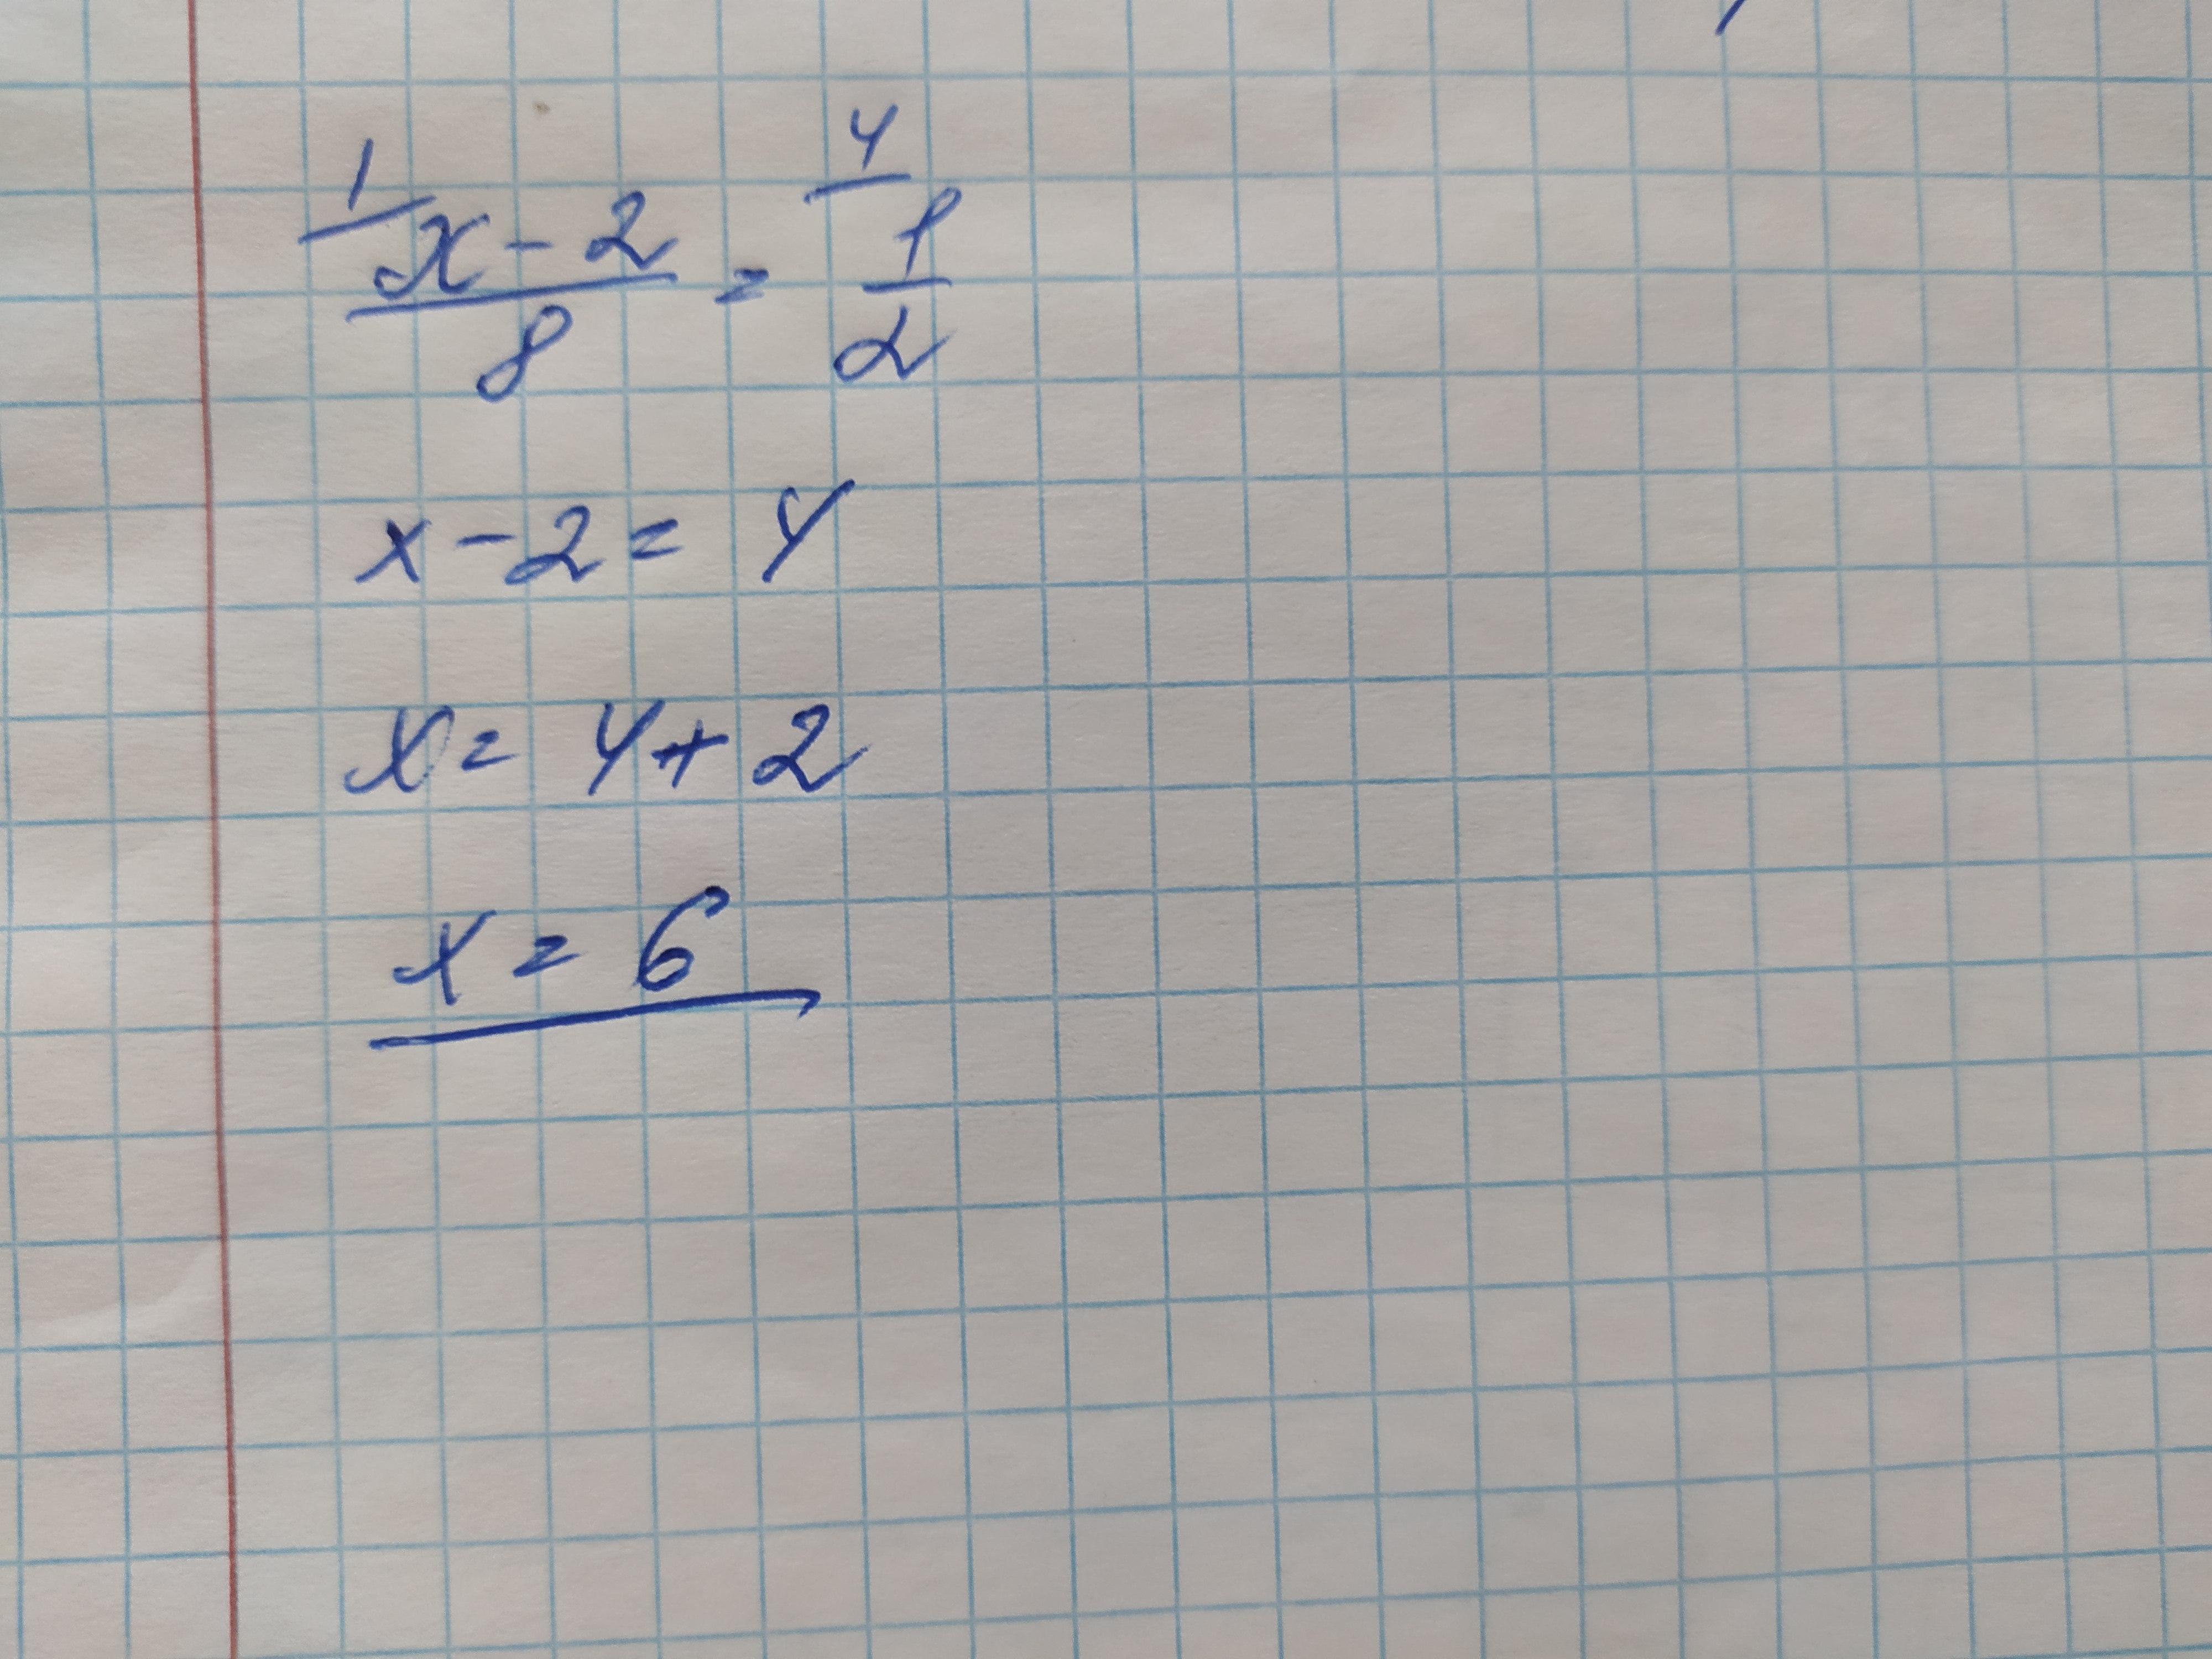 1/ x-2/8 = 4/ 1/2
x-2=4
x=4+2
x=6